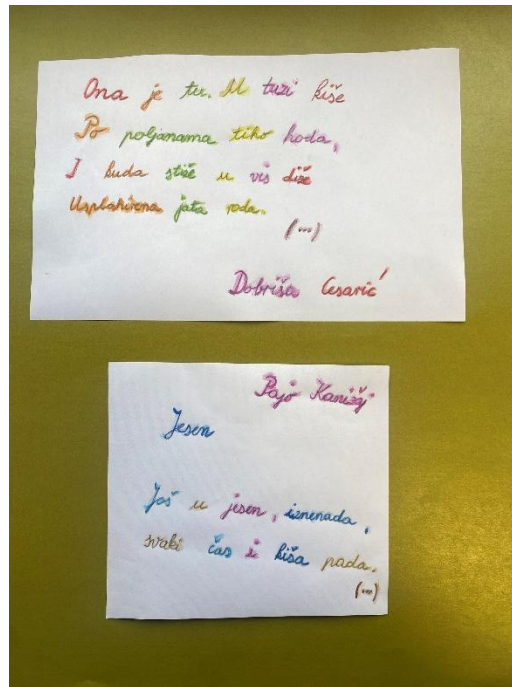 Ona je tu. U tuzi kiše
Po poljanama tiho hoda,
I kuda stiže u vis diže
Usplahirena jata roda.
(...)
Dobriša Cesarić
Pajo Kanižaj
Jesen
Još u jesen, iznenada,
svaki čas i kiša pada.
(...)